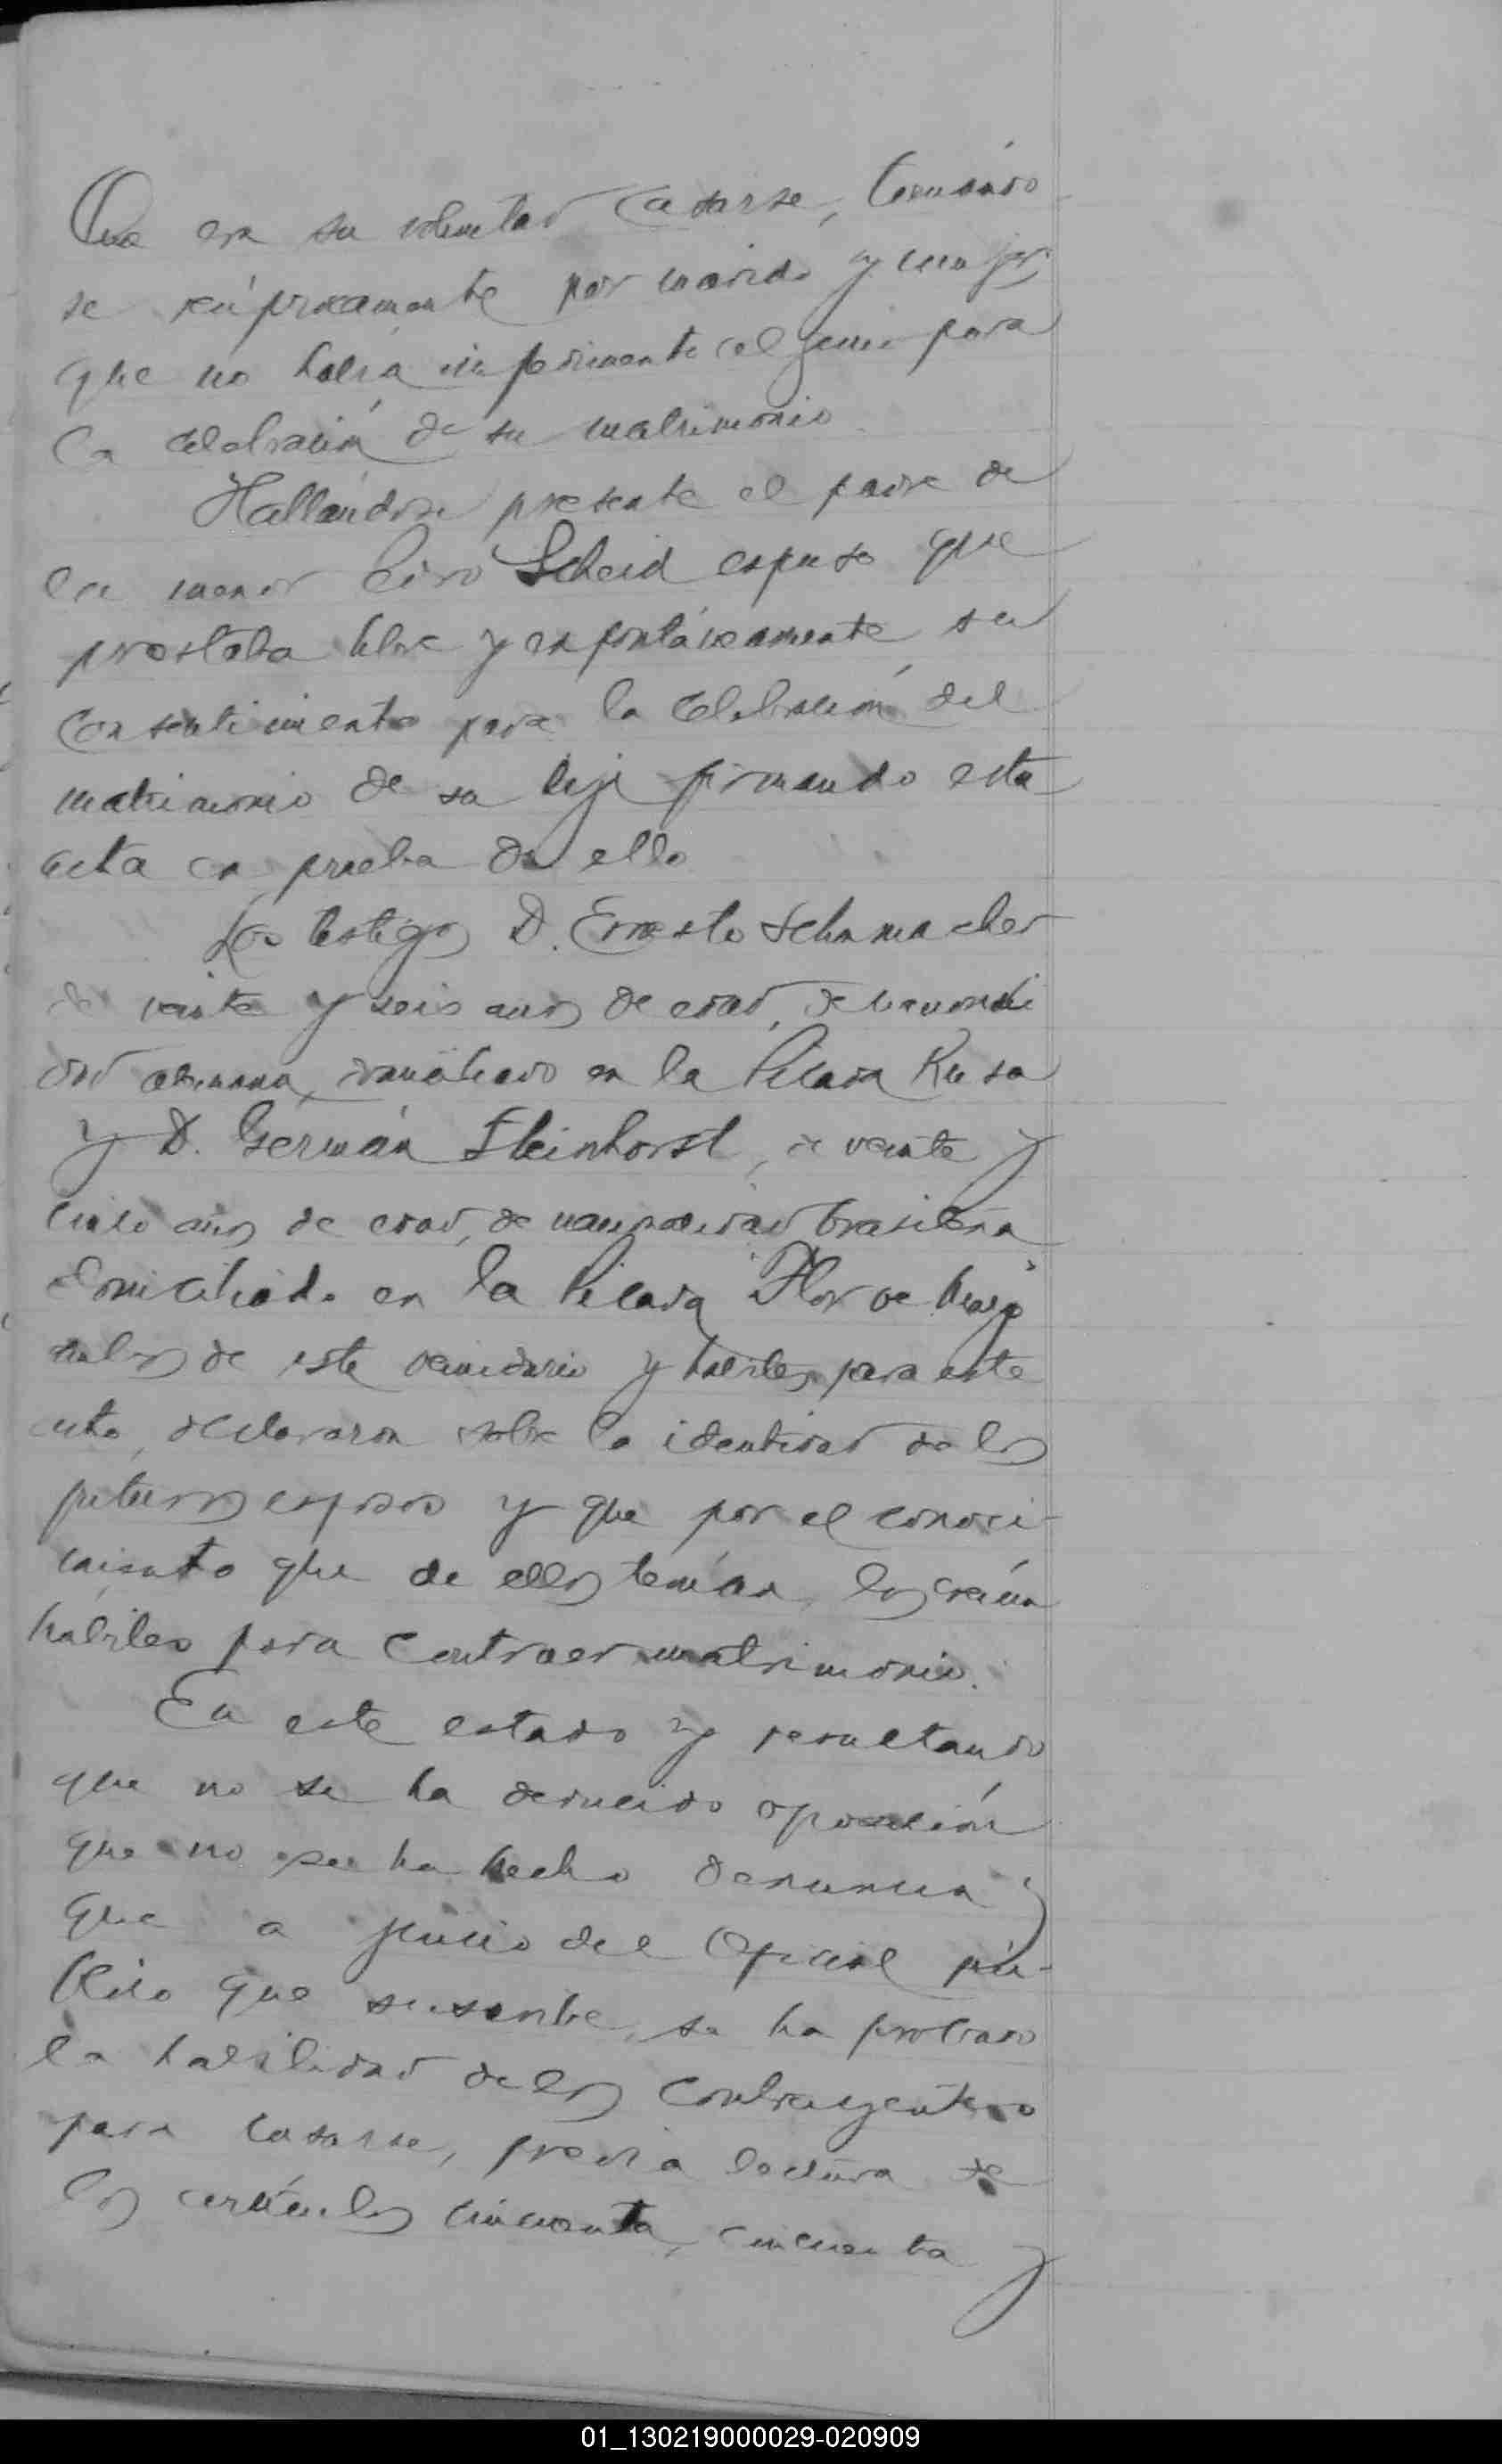 Que era su voluntad casarse, tomándo
se recíprocamente por marido y mujer,
que no había impedimento alguno para
la celebración de su matrimonio.
Hallándose presente el padre de
la menor Ciro Scheid espuso que
prestaba libre y espontáneamente su
consentimiento para la celebración del
matrimonio de su hija firmando esta
acta en prueba de ello
Los testigos D. Ernesto Schumacher
de veinte y seis años de edad, de nacionali
dad alemana, domiciliado en la Picada Rusa
y D. Germán Steinhorst, de veinte y
cinco años de edad, de nacionalidad brasileña
domiciliado en la Picada "Flor de Mayo"
ambos de este vecindario y hábiles para este
acto, declararon sobre la identidad de los
futuros esposos y que por el conoci-
miento que de ellos tenían, los creían
hábiles para contraer matrimonio.
En este estado y resultando
que no se ha deducido oposición
que no se ha hecho denuncia y
que a juicio del Oficial pú-
blico que suscribe, se ha probado
la habilidad de los contrayentes
para casarse, previa lectura de
los artículos cincuenta, cincuenta y
01_130219000029-020909